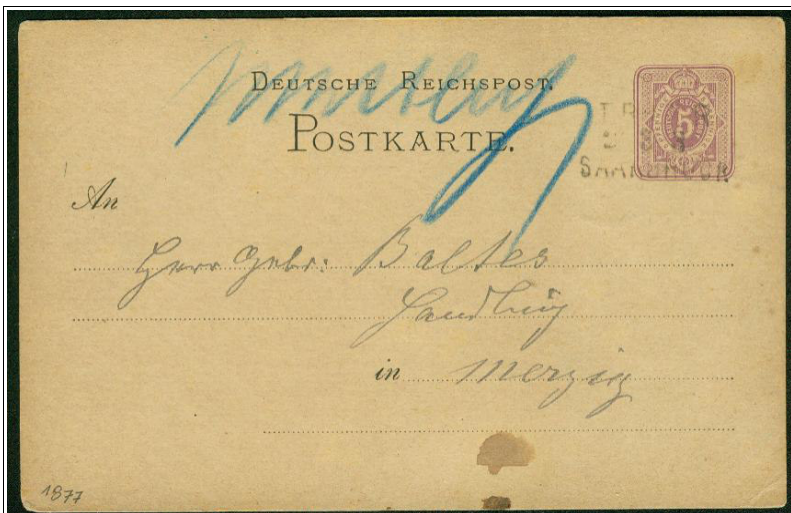 DEUTSCHE REICHSPOST.
POSTKARTE.
5
An
Herr Gebr: Baltes
Handlung
in Merzig
1877